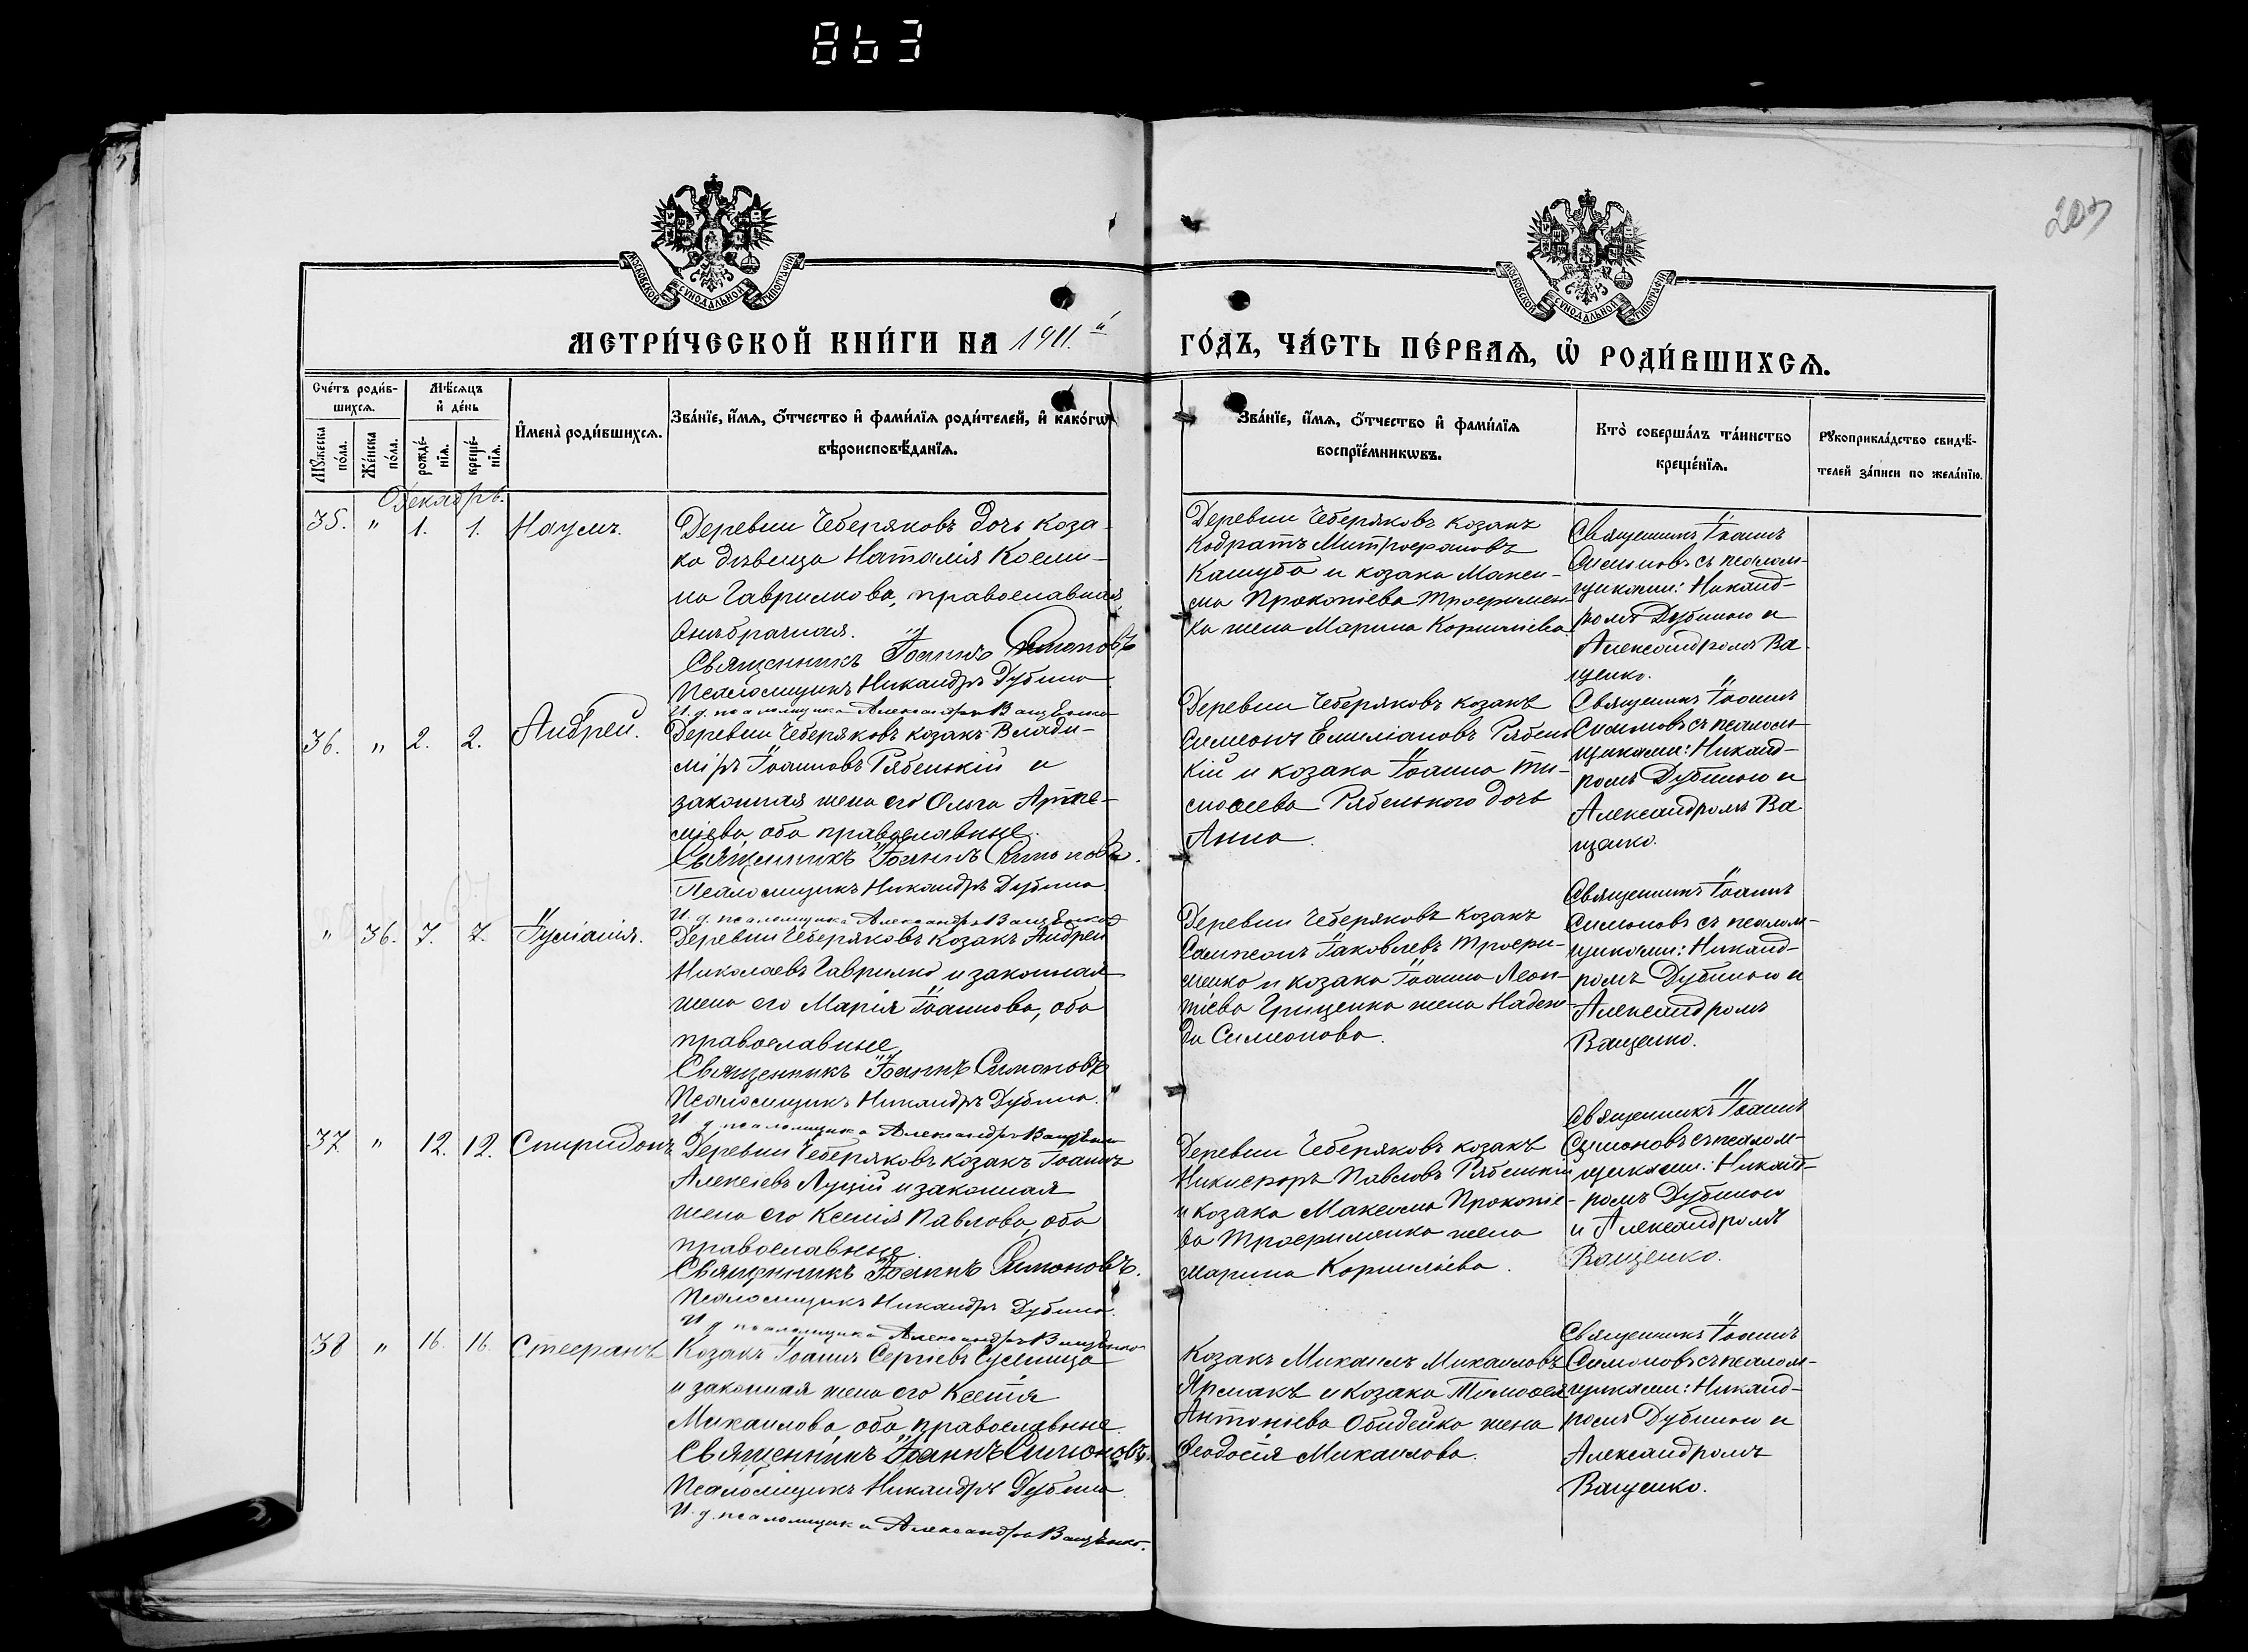 863
203
МОСКОВСКОЙ СѴНОДАЛЬНОЙ ТИПОГРАФІИ
МОСКОВСКОЙ СѴНОДАЛЬНОЙ ТИПОГРАФІИ
МЕТРИ́ЧЕСКОЙ КНИ́ГИ НА 1911.й
ГО́ДЪ, ЧА́СТЬ ПЕ́РВАѦ, Ѡ҆ РОДИ́ВШИХСѦ.
Сче́тъ роди́в-
шихсѧ.
Мꙋ́жеска по́ла.
Же́нска по́ла.
Мѣ́сѧцъ
и҆ де́нь
рожде́-
нїѧ.
креще́-
нїѧ.
И҆мена̀ роди́вшихсѧ.
Зва́нїе, и҆́мѧ, ѻ҆́тчество и҆ фами́лїѧ роди́телей, и҆ како́гѡ
вѣроисповѣ́данїѧ.
Зва́нїе, и҆́мѧ, ѻ҆́тчество и҆ фами́лїѧ
воспрїе́мникѡвъ.
Кто̀ соверша́лъ та́инство
креще́нїѧ.
Рꙋкоприкла́дство свидѣ́-
телей за́писи по жела́нїю.
Декабрь.
35. " 1. 1. Наумъ.
Деревни Чеберяковъ дочь коза-
ка дѣвица Наталія Косми-
на Гаврилкова, православная,
внѣбрачная.
Священникъ Іоаннъ Симоновъ
Псаломщикъ Никандръ Дубина.
И. д. псаломщика Александръ Ващенко
Деревни Чеберяковъ козакъ
Кодратъ Митрофановъ
Кашуба и козака Макси-
ма Прокопіева Трофимен-
ка жена Марина Корниліева.
Священникъ Іоаннъ
Симоновъ съ псалом-
щиками: Никанд-
ромъ Дубиною и
Александромъ Ва-
щенко.
36. " 2. 2. Андрей.
Деревни Чеберяковъ козакъ Влади-
міръ Іоанновъ Рябенькій и
законная жена его Ольга Арте-
міева, оба православные.
Священникъ Іоаннъ Симоновъ.
Псаломщикъ Никандръ Дубина
И. д. псаломщика Александръ Ващенко
Деревни Чеберяковъ козакъ
Симеонъ Емиліановъ Рябень-
кій и козака Іоанна Ти-
моѳеева Рябенького дочь
Анна.
Священникъ Іоаннъ
Симоновъ съ псалом-
щиками: Никанд-
ромъ Дубиною и
Александромъ Ва-
щенко.
" 36. 7. 7. Іуліанія.
Деревни Чеберяковъ козакъ Андрей
Николаевъ Гаврилко и законная
жена его Марія Іоаннова, оба
православные.
Священникъ Іоаннъ Симоновъ
Псаломщикъ Никандръ Дубина.
И. д. псаломщика Александръ Ващенко
Деревни Чеберяковъ козакъ
Сампсонъ Іаковлевъ Трофи-
менко и козака Іоанна Леон-
тіева Грищенка жена Надеж-
да Симеонова.
Священникъ Іоаннъ
Симоновъ съ псалом-
щиками: Никанд-
ромъ Дубиною и
Александромъ
Ващенко.
37. " 12. 12. Спиридонъ
Деревни Чеберяковъ козакъ Іоаннъ
Алексіевъ Луцій и законная
жена его Ксенія Павлова, оба
православные.
Священникъ Іоаннъ Симоновъ.
Псаломщикъ Никандръ Дубина.
И. д. псаломщика Александръ Ващенко
Деревни Чеберяковъ козакъ
Никифоръ Павловъ Рябенькій
и козака Максима Прокопіе-
ва Трофименка жена
Марина Корниліева.
Священникъ Іоаннъ
Симоновъ съ псалом-
щиками: Никанд-
ромъ Дубиною
и Александромъ
Ващенко.
38 " 16. 16. Стефанъ
Козакъ Іоаннъ Сергіевъ
и законная жена его Ксенія
Михаилова, оба православные.
Священникъ Іоаннъ Симоновъ.
Псаломщикъ Никандръ Дубина.
И. д. псаломщика Александръ Ващенко.
Козакъ Михаилъ Михаиловъ
Ярмакъ и козака Тимоѳея
Антоніева Обидейка жена
Ѳеодосія Михаилова.
Священникъ Іоаннъ
Симоновъ съ псалом-
щиками: Никанд-
ромъ Дубиною и
Александромъ
Ващенко.